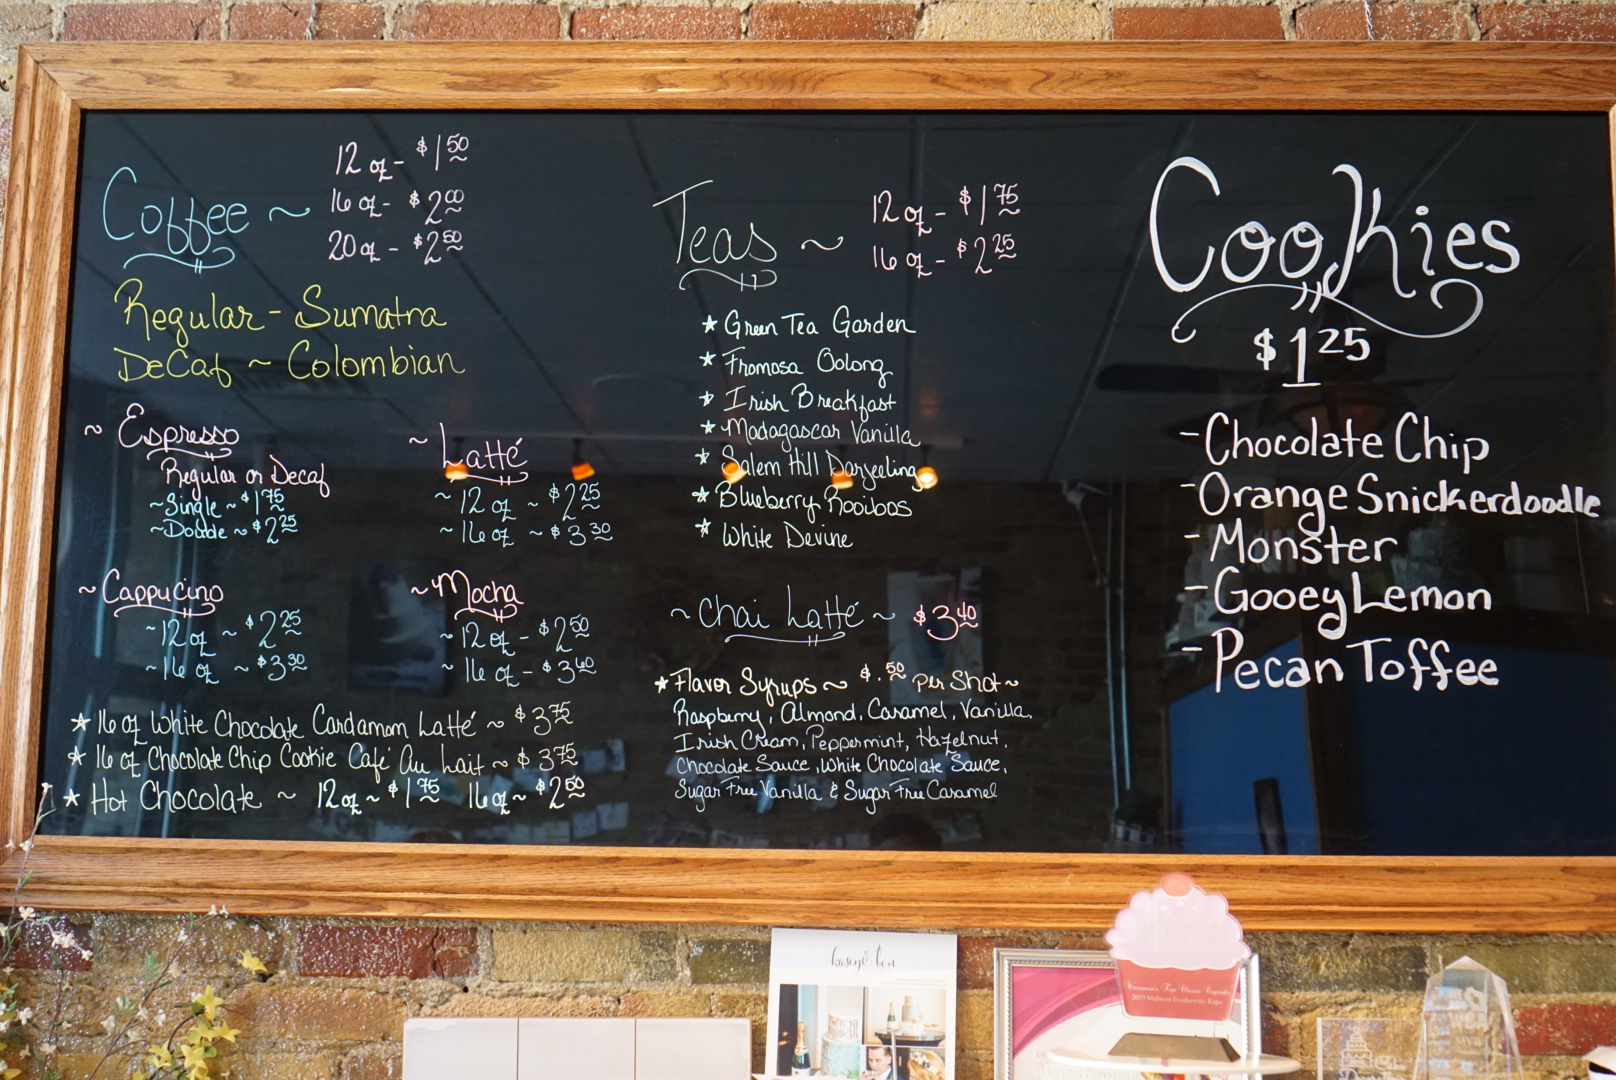 Coffee ~
12 oz - $1.50
16 oz - $2.00
20 oz - $2.50
Regular - Sumatra
DeCaf ~ Colombian
~ Espresso
Regular or Decaf
~Single ~ $1.75
~Double ~ $2.25
~ Latté
~ 12 oz ~ $2.25
~ 16 oz ~ $3.30
~Cappucino
~12 oz ~ $2.25
~16 oz ~ $3.30
~Mocha
~12 oz - $2.50
~16 oz - $3.60
★ 16 oz White Chocolate Cardamom Latté ~ $3.75
★ 16 oz Chocolate Chip Cookie Café Au Lait ~ $3.75
★ Hot Chocolate ~ 12 oz ~ $1.75 16 oz ~ $2.50
Teas ~
12 oz - $1.75
16 oz - $2.25
★ Green Tea Garden
★ Fromosa Oolong
★ Irish Breakfast
★ Madagascar Vanilla
★ Salem Hill Darjeeling
★ Blueberry Rooibos
★ White Devine
~ Chai Latté ~ $3.40
★ Flavor Syrups ~ $.50 per Shot ~
Raspberry, Almond, Caramel, Vanilla,
Irish Cream, Peppermint, Hazelnut,
Chocolate Sauce, White Chocolate Sauce,
Sugar Free Vanilla & Sugar Free Caramel
Cookies
$1.25
- Chocolate Chip
- Orange Snickerdoodle
- Monster
- Gooey Lemon
- Pecan Toffee
2019 Midwest Foodservice Expo